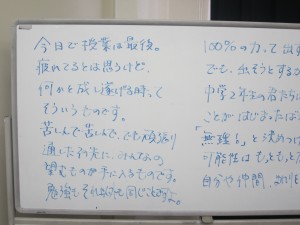 今日で授業は最後。
疲れてるとは思うけど、
何かを成し遂げる時って
そういうものです。
苦しんで苦しんで、でも頑張り
通したその先に、みんなの
望むものが手に入るものです。
勉強もそれ以外も同じことですよ。
100%の力って出す
でも、出そうとするか
中学2年生の君たちに
ことがはじまったばか
「無理」と決めつけ
可能性はもっともっと
自分や仲間、